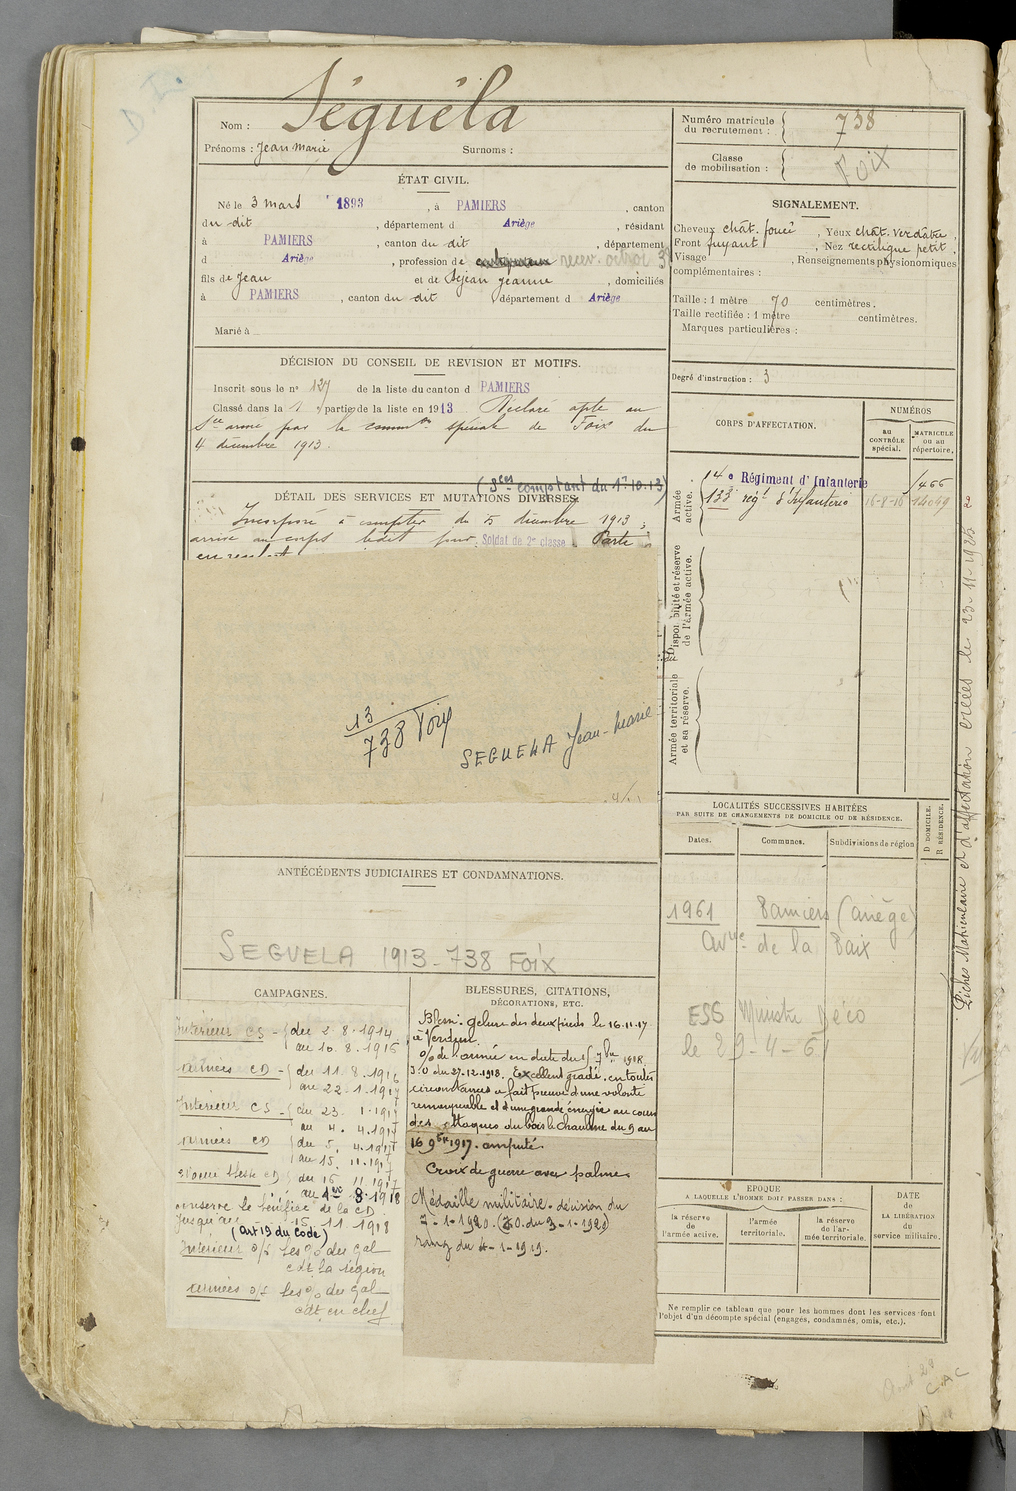 Nom : Séguéla
Prénoms : Jean marie Surnoms :
Numéro matricule du recrutement : 738
Classe de mobilisation : Foix
ÉTAT CIVIL.
Né le 3 mars 1893, à PAMIERS, canton
du dit, département d Ariège, résidant
à PAMIERS, canton du dit, département
d Ariège, profession de recev. octroi
fils de Jean et de Séjean Jeanne, domiciliés
à PAMIERS, canton du dit département d Ariège
Marié à
SIGNALEMENT.
Cheveux chât. foncé, Yeux chât. verdâtre.
Front fuyant, Nez rectiligne petit.
Visage, Renseignements physionomiques
complémentaires :
Taille : 1 mètre 70 centimètres.
Taille rectifiée : 1 mètre centimètres.
Marques particulières :
Degré d'instruction : 3
DÉCISION DU CONSEIL DE REVISION ET MOTIFS.
Inscrit sous le n° 127 de la liste du canton d PAMIERS
Classé dans la 1 partie de la liste en 1913 Déclaré apte au
Sce armé par la common spéciale de Foix du
4 décembre 1913.
(Sces comptant du 1-10-13)
DÉTAIL DES SERVICES ET MUTATIONS DIVERSES.
Incorporé à compter du 5 décembre 1913,
arrivé au corps ledit jour. Soldat de 2e classe. Porté
13
738 Foix
SEGUELA Jean-Marie
CORPS D'AFFECTATION.
NUMÉROS
au CONTRÔLE spécial.
MATRICULE ou au répertoire.
Armée active.
14e Régiment d'Infanterie 1466
133 régt d'Infanterie 16-8-16 14049
Disponibilité et réserve de l'armée active.
Armée territoriale et sa réserve.
LOCALITÉS SUCCESSIVES HABITÉES
PAR SUITE DE CHANGEMENTS DE DOMICILE OU DE RÉSIDENCE.
Dates. Communes. Subdivisions de région
D DOMICILE.
R RÉSIDENCE.
1961 Pamiers (Ariège)
Avue de la Paix
ESG Ministre Déco
le 29-4-61
Fiches Matriculaire et d'affectation créées le 23-11-1925
ANTÉCÉDENTS JUDICIAIRES ET CONDAMNATIONS.
SEGUELA 1913-738 FOIX
CAMPAGNES.
Intérieur CS - du 2.8.1914
au 10.8.1916
armées CD - du 11.8.1916
au 22-1-1917
Intérieur CS - du 23.1.1917
au 4.4.1917
armées CD du 5.4.1917
au 15.11.1917
du 16.11.1917
au 1er 8.1918
conserve le bénéfice de la CD
jusqu'au 15.11.1918
(Art 19 du Code)
Intérieur o/s les o/o du gal
cdt la région
armées o/s les o/o du gal
cdt en chef
BLESSURES, CITATIONS,
DÉCORATIONS, ETC.
Bless. Gelure des deux pieds le 16.11.17
à Verdun.
J.O du 27-12-1918. Excellent gradé, en toutes
circonstances a fait preuve d'une volonté
remarquable et d'une grande énergie au cours
des attaques du bois le Chaulme du 9 au
16 9bre 1917. amputé.
Croix de guerre avec palme
Médaille militaire. décision du
7-1-1920. (J.O. du 3-1-1921)
rang du 4-1-1919.
EPOQUE
A LAQUELLE L'HOMME DOIT PASSER DANS :
la réserve de l'armée active.
l'armée territoriale.
la réserve de l'armée territoriale.
DATE
de
LA LIBÉRATION
du
service militaire.
Ne remplir ce tableau que pour les hommes dont les services font
l'objet d'un décompte spécial (engagés, condamnés, omis, etc.).